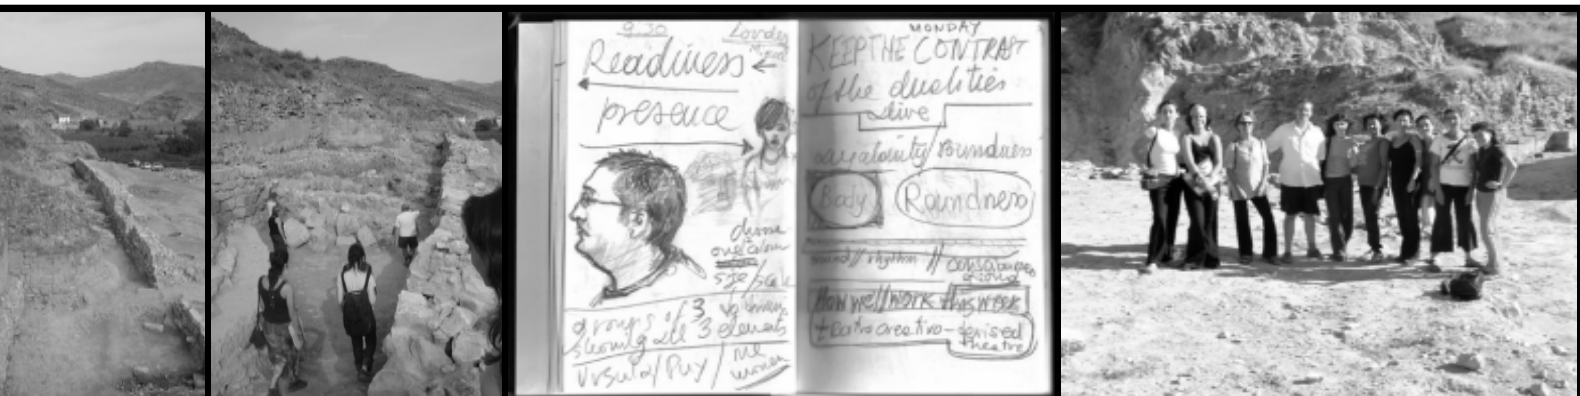 9.30
Readiness
presence
choose
one colour
size/scale
groups of 3
showing all 3 elements
Ursula/Puy/me
women
MONDAY
KEEP THE CONTRAST
of the dualities
alive
angularity/roundness
Body
Roundness
sound//rhythm//
How we'll work this week
teatro creativo-devised
theatre